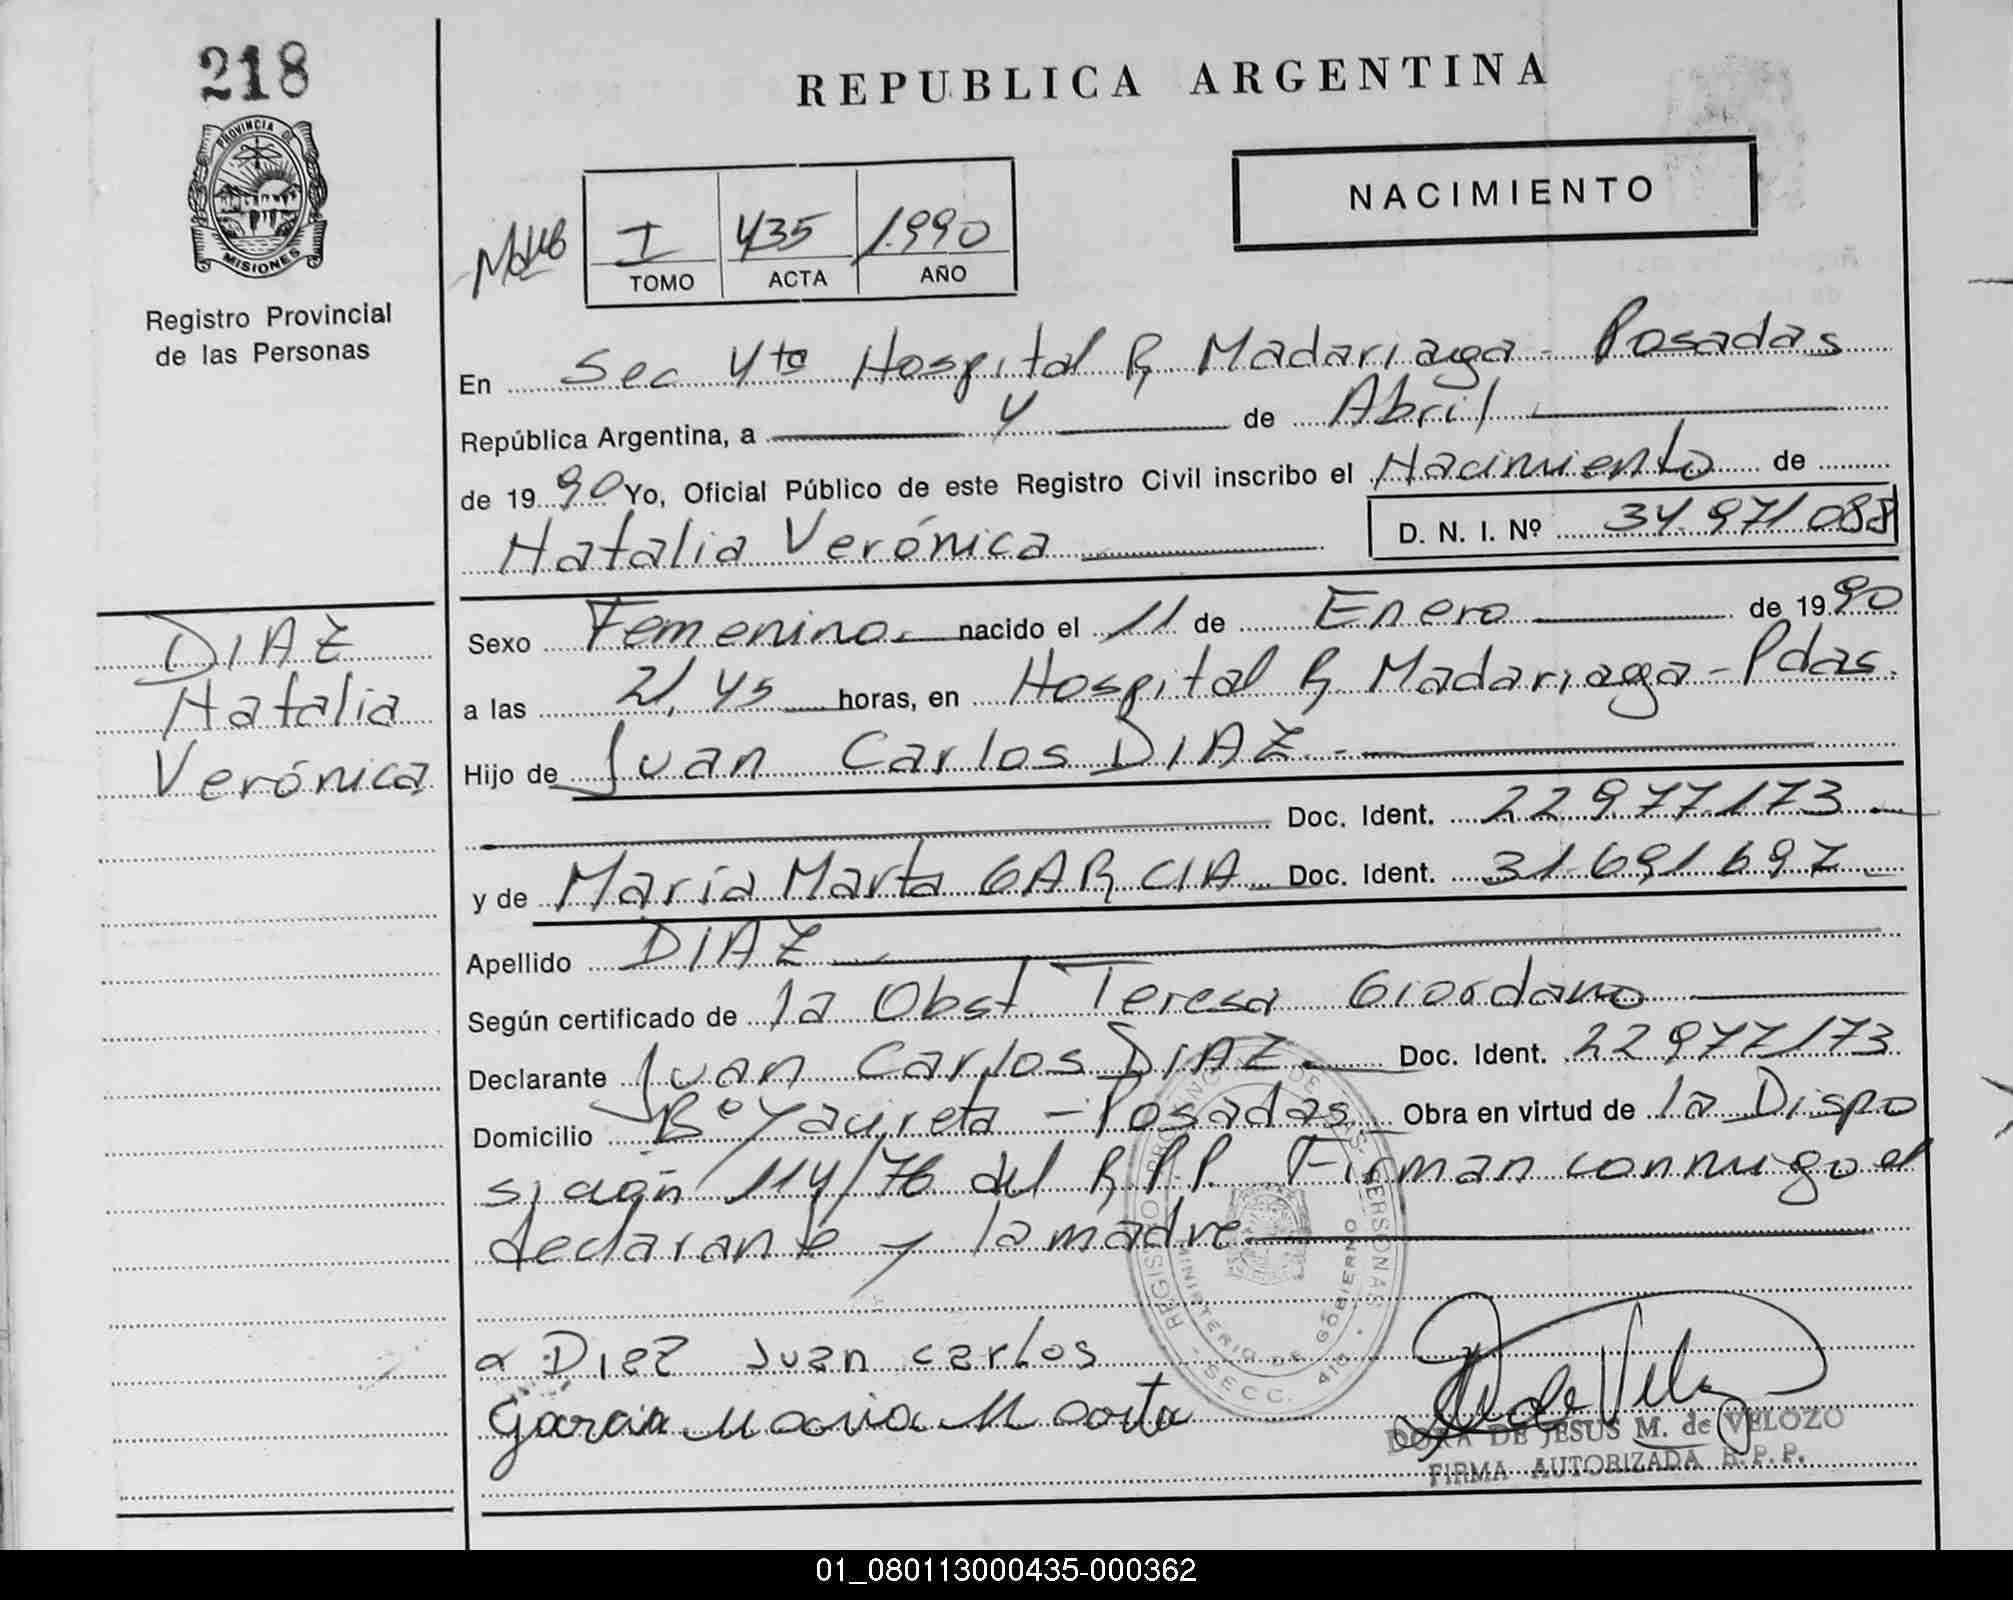 218
REPUBLICA ARGENTINA
PROVINCIA DE
MISIONES
NACIMIENTO
I 435 1.990
TOMO ACTA AÑO
Registro Provincial
de las Personas
En Sec 4ta Hospital R Madariaga - Posadas
República Argentina, a 4 de Abril
de 1990 Yo, Oficial Público de este Registro Civil inscribo el Nacimiento de
Natalia Verónica D. N. I. Nº 34.971.088
DIAZ
Natalia
Verónica
Sexo Femenino.- nacido el 11 de Enero de 1990
a las 21,45 horas, en Hospital R. Madariaga - Pdas.
Hijo de Juan Carlos DIAZ.-
Doc. Ident. 22.977.173.-
y de Maria Marta GARCIA Doc. Ident. 31.691.697.-
Apellido DIAZ
Según certificado de la Obst. Teresa Giordano
Declarante Juan Carlos DIAZ.- Doc. Ident. 22.977.173
Domicilio Bº Yacireta - Posadas Obra en virtud de la Dispo
sición 114/76 del R.P.P. Firman conmigo el
declarante y la madre
REGISTRO PROVINCIAL DE LAS PERSONAS
MINISTERIO DE GOBIERNO
SECC. 4ta
Diaz Juan carlos
Garcia Maria Marta
DORA DE JESUS M. de VELOZO
FIRMA AUTORIZADA R.P.P.
01_080113000435-000362